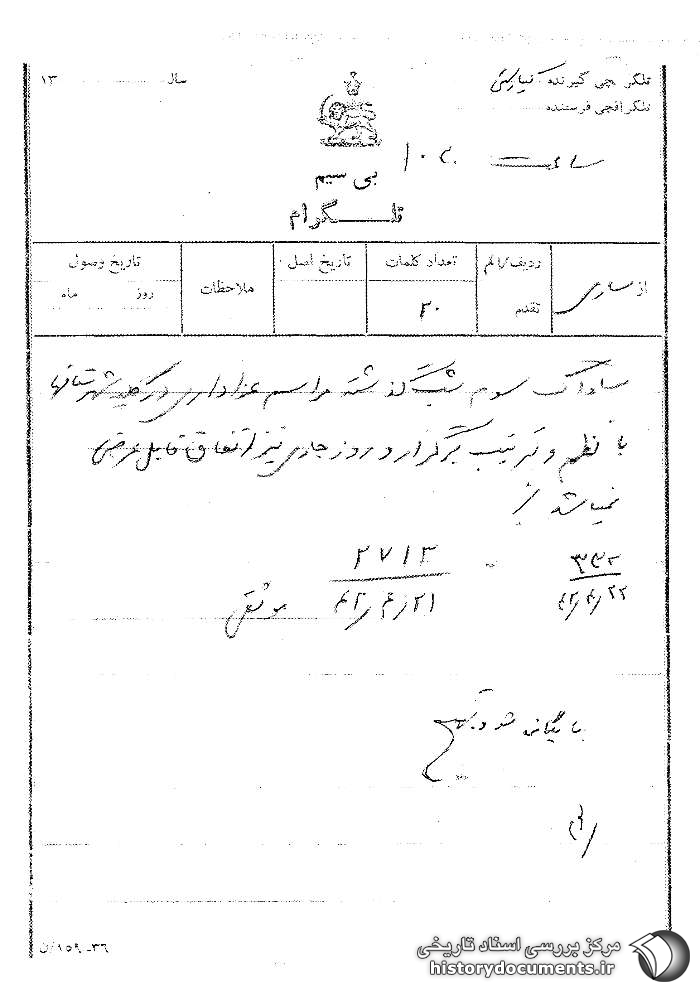 تلگرافچی گیرنده
سال ۱۳
تلگرافچی فرستنده
ساعت ۱۰۲۰
بی سیم
تلگرام
از ساری
ردیف/الم
تقدم
تعداد کلمات
۲۰
تاریخ اصل
ملاحظات
تاریخ وصول
روز ماه
ساواک سوم شب گذشته مراسم عزاداری در کلیه شهرستانها
با نظم و ترتیب برگزار و روز جاری نیز اتفاق قابل عرضی
نمیباشد
۲۷۱۳
۴۲/۴/۲۱
موثقی
۳۹۲
۴۲/۴/۲۲
بایگانی شود
۳۶-۱۵۹/ن
مرکز بررسی اسناد تاریخی
historydocuments.ir